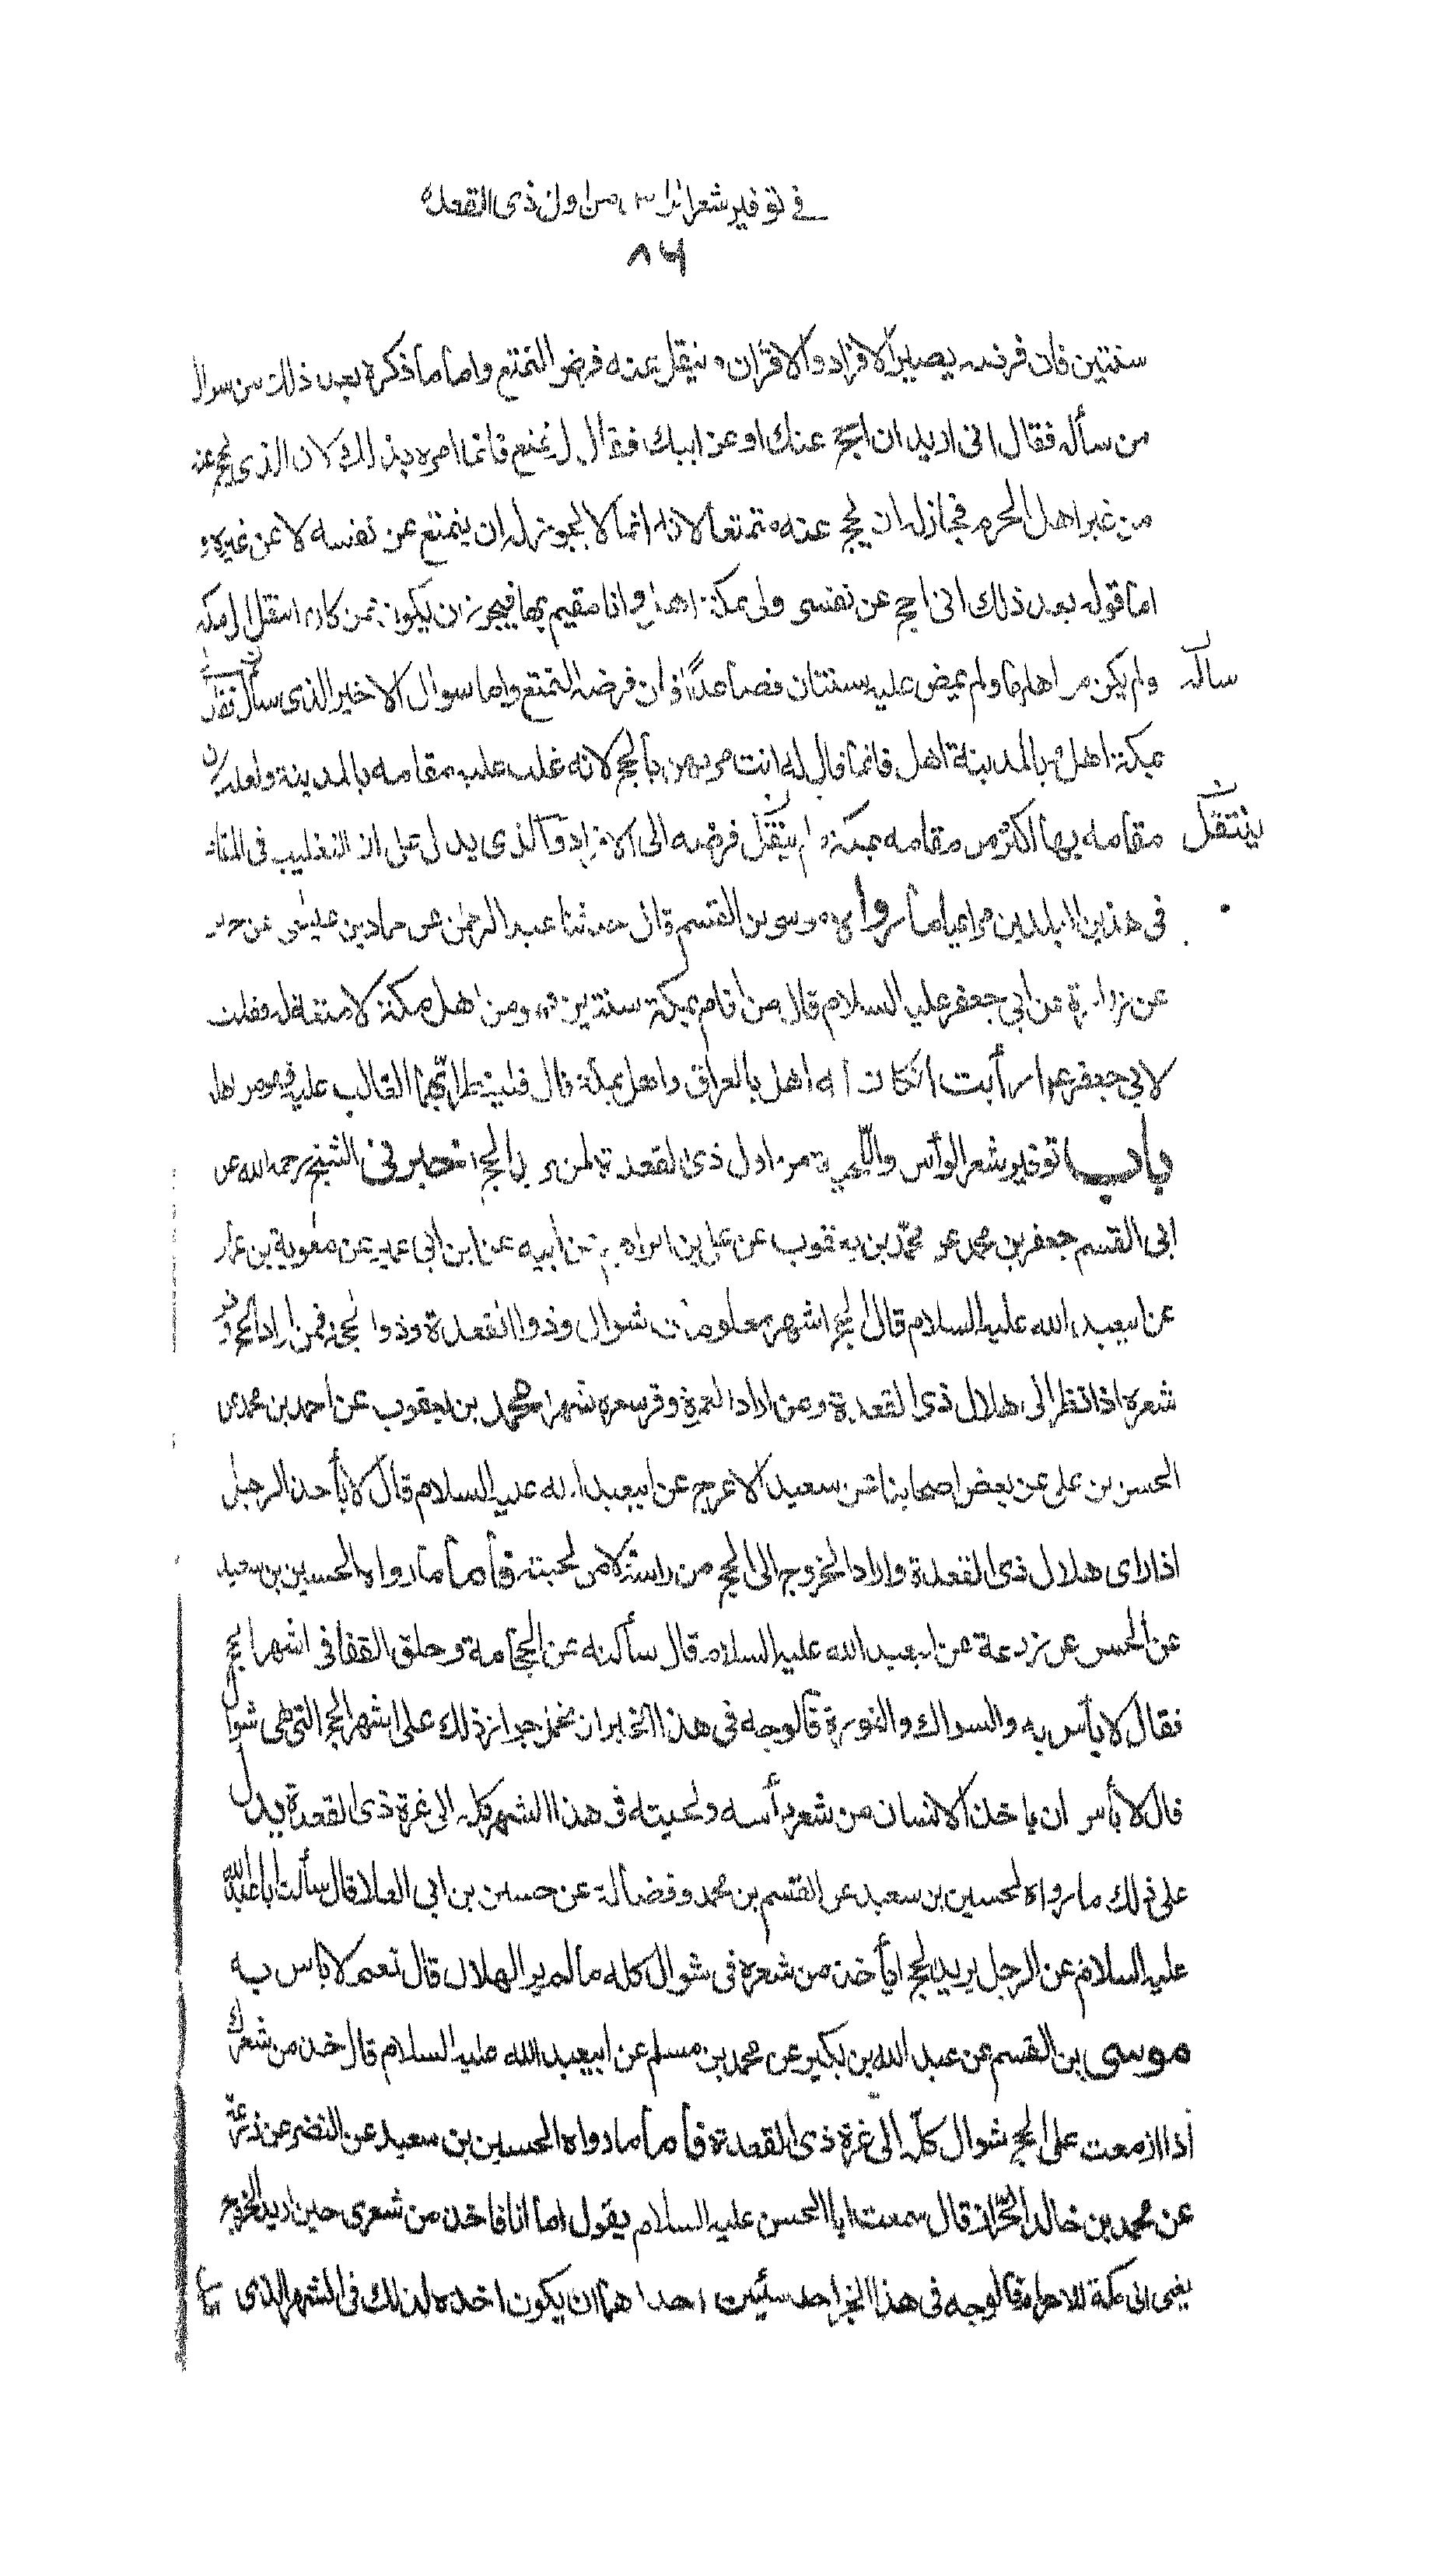 في توفير شعر الراس من اول ذى القعدة
٨٤
سنتين فان فرضه يصير الافراد والاقران وينتقل عنه فرض التمتع واما ما ذكره بعد ذلك من سوال
من سأله فقال انى اريد ان احج عنك او عن ابيك فقال له تمتع فانما امره بذلك لان الذى يحج عنه
من غير اهل الحرم فجاز له ان يحج عنه متمتعا لانه انما لا يجوز له ان يتمتع عن نفسه لا عن غيره و
اما قوله بعد ذلك انى احج عن نفسى ولى بمكة اهل وانا مقيم بها فيجوز ان يكون ممن كان انتقل الى مكة
ولم يكن من اهلها ولم يمض عليه سنتان فصاعدًا فان فرضه التمتع واما سوال الاخير الذى سأل فقال
سأله
بمكة اهل وبالمدينة اهل فانما قال له انت مرتهن بالحج لانه غلب عليه مقامه بالمدينة ولعله ان
مقامه بها اكثر من مقامه بمكة ولم ينتقل فرضه الى الافراد والذى يدل على ان التغليب فى المقام
ينتقل
فى هذين البلدين مراعيا ما رواه موسى بن القسم قال حدثنا عبد الرحمن عن حماد بن عيسى عن حر
عن زرارة عن ابى جعفر عليه السلام قال من اقام بمكة سنتين فهو من اهل مكة لا متعة له فقلت
لابي جعفر ع ارأيت ان كان له اهل بالعراق واهل بمكة قال فلينظر ايهما الغالب عليه فهو من اهله
باب توفير شعر الرأس واللحية من اول ذى القعدة لمن يريد الحج اخبرني الشيخ رحمه الله عن
ابى القسم جعفر بن محمد عن محمد بن يعقوب عن على بن ابراهيم عن أبيه عن ابن أبى عمير عن معوية بن عمار
عن ابيعبد الله عليه السلام قال الحج اشهر معلومات شوال وذو القعدة وذو الحجة فمن اراد الحج وفر
شعره اذا نظر الى هلال ذى القعدة ومن اراد العمرة وفر شعره شهرا محمد بن يعقوب عن احمد بن محمد عن
الحسن بن على عن بعض اصحابنا عن سعيد الاعرج عن ابيعبد الله عليه السلام قال لا يأخذ الرجل
اذا راى هلال ذى القعدة واراد الخروج الى الحج من راسه ولا من لحيته فأما ما رواه الحسين بن سعيد
عن الحسن عن زرعة عن ابيعبد الله عليه السلام قال سألته عن الحجامة وحلق القفا فى اشهر الحج
فقال لا بأس به والسواك والنورة فالوجه فى هذا الخبر ان نحمل جواز ذلك على اشهر الحج التى هى شوال
قال لا بأس ان ياخذ الانسان من شعر رأسه ولحيته فى هذا الشهر كله الى غرة ذى القعدة يدل
على ذلك ما رواه الحسين بن سعيد عن القسم بن محمد وفضالة عن حسين بن ابى العلا قال سألت ابا عبد الله
عليه السلام عن الرجل يريد الحج أيأخذ من شعره فى شوال كله ما لم ير الهلال قال نعم لا باس به
موسى بن القسم عن عبد الله بن بكير عن محمد بن مسلم عن ابيعبد الله عليه السلام قال خذ من شعرك
اذا ازمعت على الحج شوال كله الى غرة ذى القعدة فأما ما رواه الحسين بن سعيد عن النضر عن زرعة
عن محمد بن خالد الخزاز قال سمعت ابا الحسن عليه السلام يقول اما انا فاخذ من شعرى حين اريد الخروج
يعنى الى مكة للاحرام فالوجه فى هذا الخبر احد شيئين احدهما ان يكون اخذه لذلك فى الشهر الذى